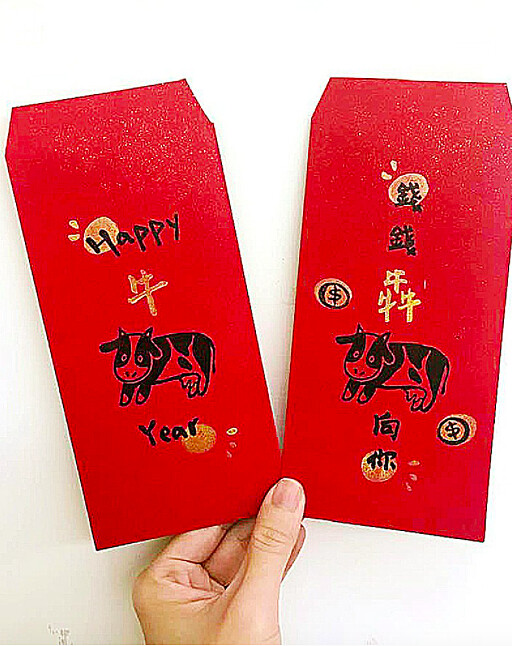 Happy
牛
Year
錢
錢
犇
向
你
$
$